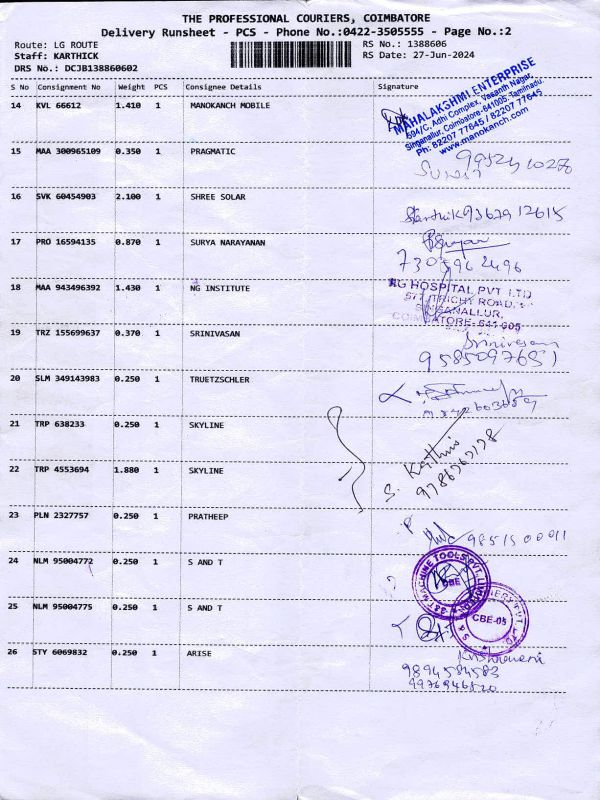 THE PROFESSIONAL COURIERS, COIMBATORE
Delivery Runsheet - PCS - Phone No.:0422-3505555 - Page No.:2
Route: LG ROUTE RS No.: 1388606
Staff: KARTHICK RS Date: 27-Jun-2024
DRS No.: DCJB138860602
S No Consignment No Weight PCS Consignee Details Signature
14 KVL 66612 1.410 1 MANOKANCH MOBILE
MAHALAKSHMI ENTERPRISE
594/C, Adhi Complex, Vasanth Nagar,
Singanallur, Coimbatore-641005 Tamilnadu.
Ph: 82207 77645 / 82207 77645
www.manokanch.com
15 MAA 300965109 0.350 1 PRAGMATIC
16 SVK 60454903 2.100 1 SHREE SOLAR
Karthik 9367912615
17 PRO 16594135 0.870 1 SURYA NARAYANAN
7305962496
18 MAA 943496392 1.430 1 NG INSTITUTE
NG HOSPITAL PVT LTD
577, TRICHY ROAD,
SINGANALLUR,
COIMBATORE-641 005
19 TRZ 155699637 0.370 1 SRINIVASAN
Srinivasan
9585097651
20 SLM 349143983 0.250 1 TRUETZSCHLER
21 TRP 638233 0.250 1 SKYLINE
22 TRP 4553694 1.880 1 SKYLINE
S. Karthik
23 PLN 2327757 0.250 1 PRATHEEP
24 NLM 95004772 0.250 1 S AND T
S&T MACHINE TOOLS PVT. LIMITED
CBE
25 NLM 95004775 0.250 1 S AND T
CBE-05
26 STY 6069832 0.250 1 ARISE
Krishnaveni
9894584583
9976946820